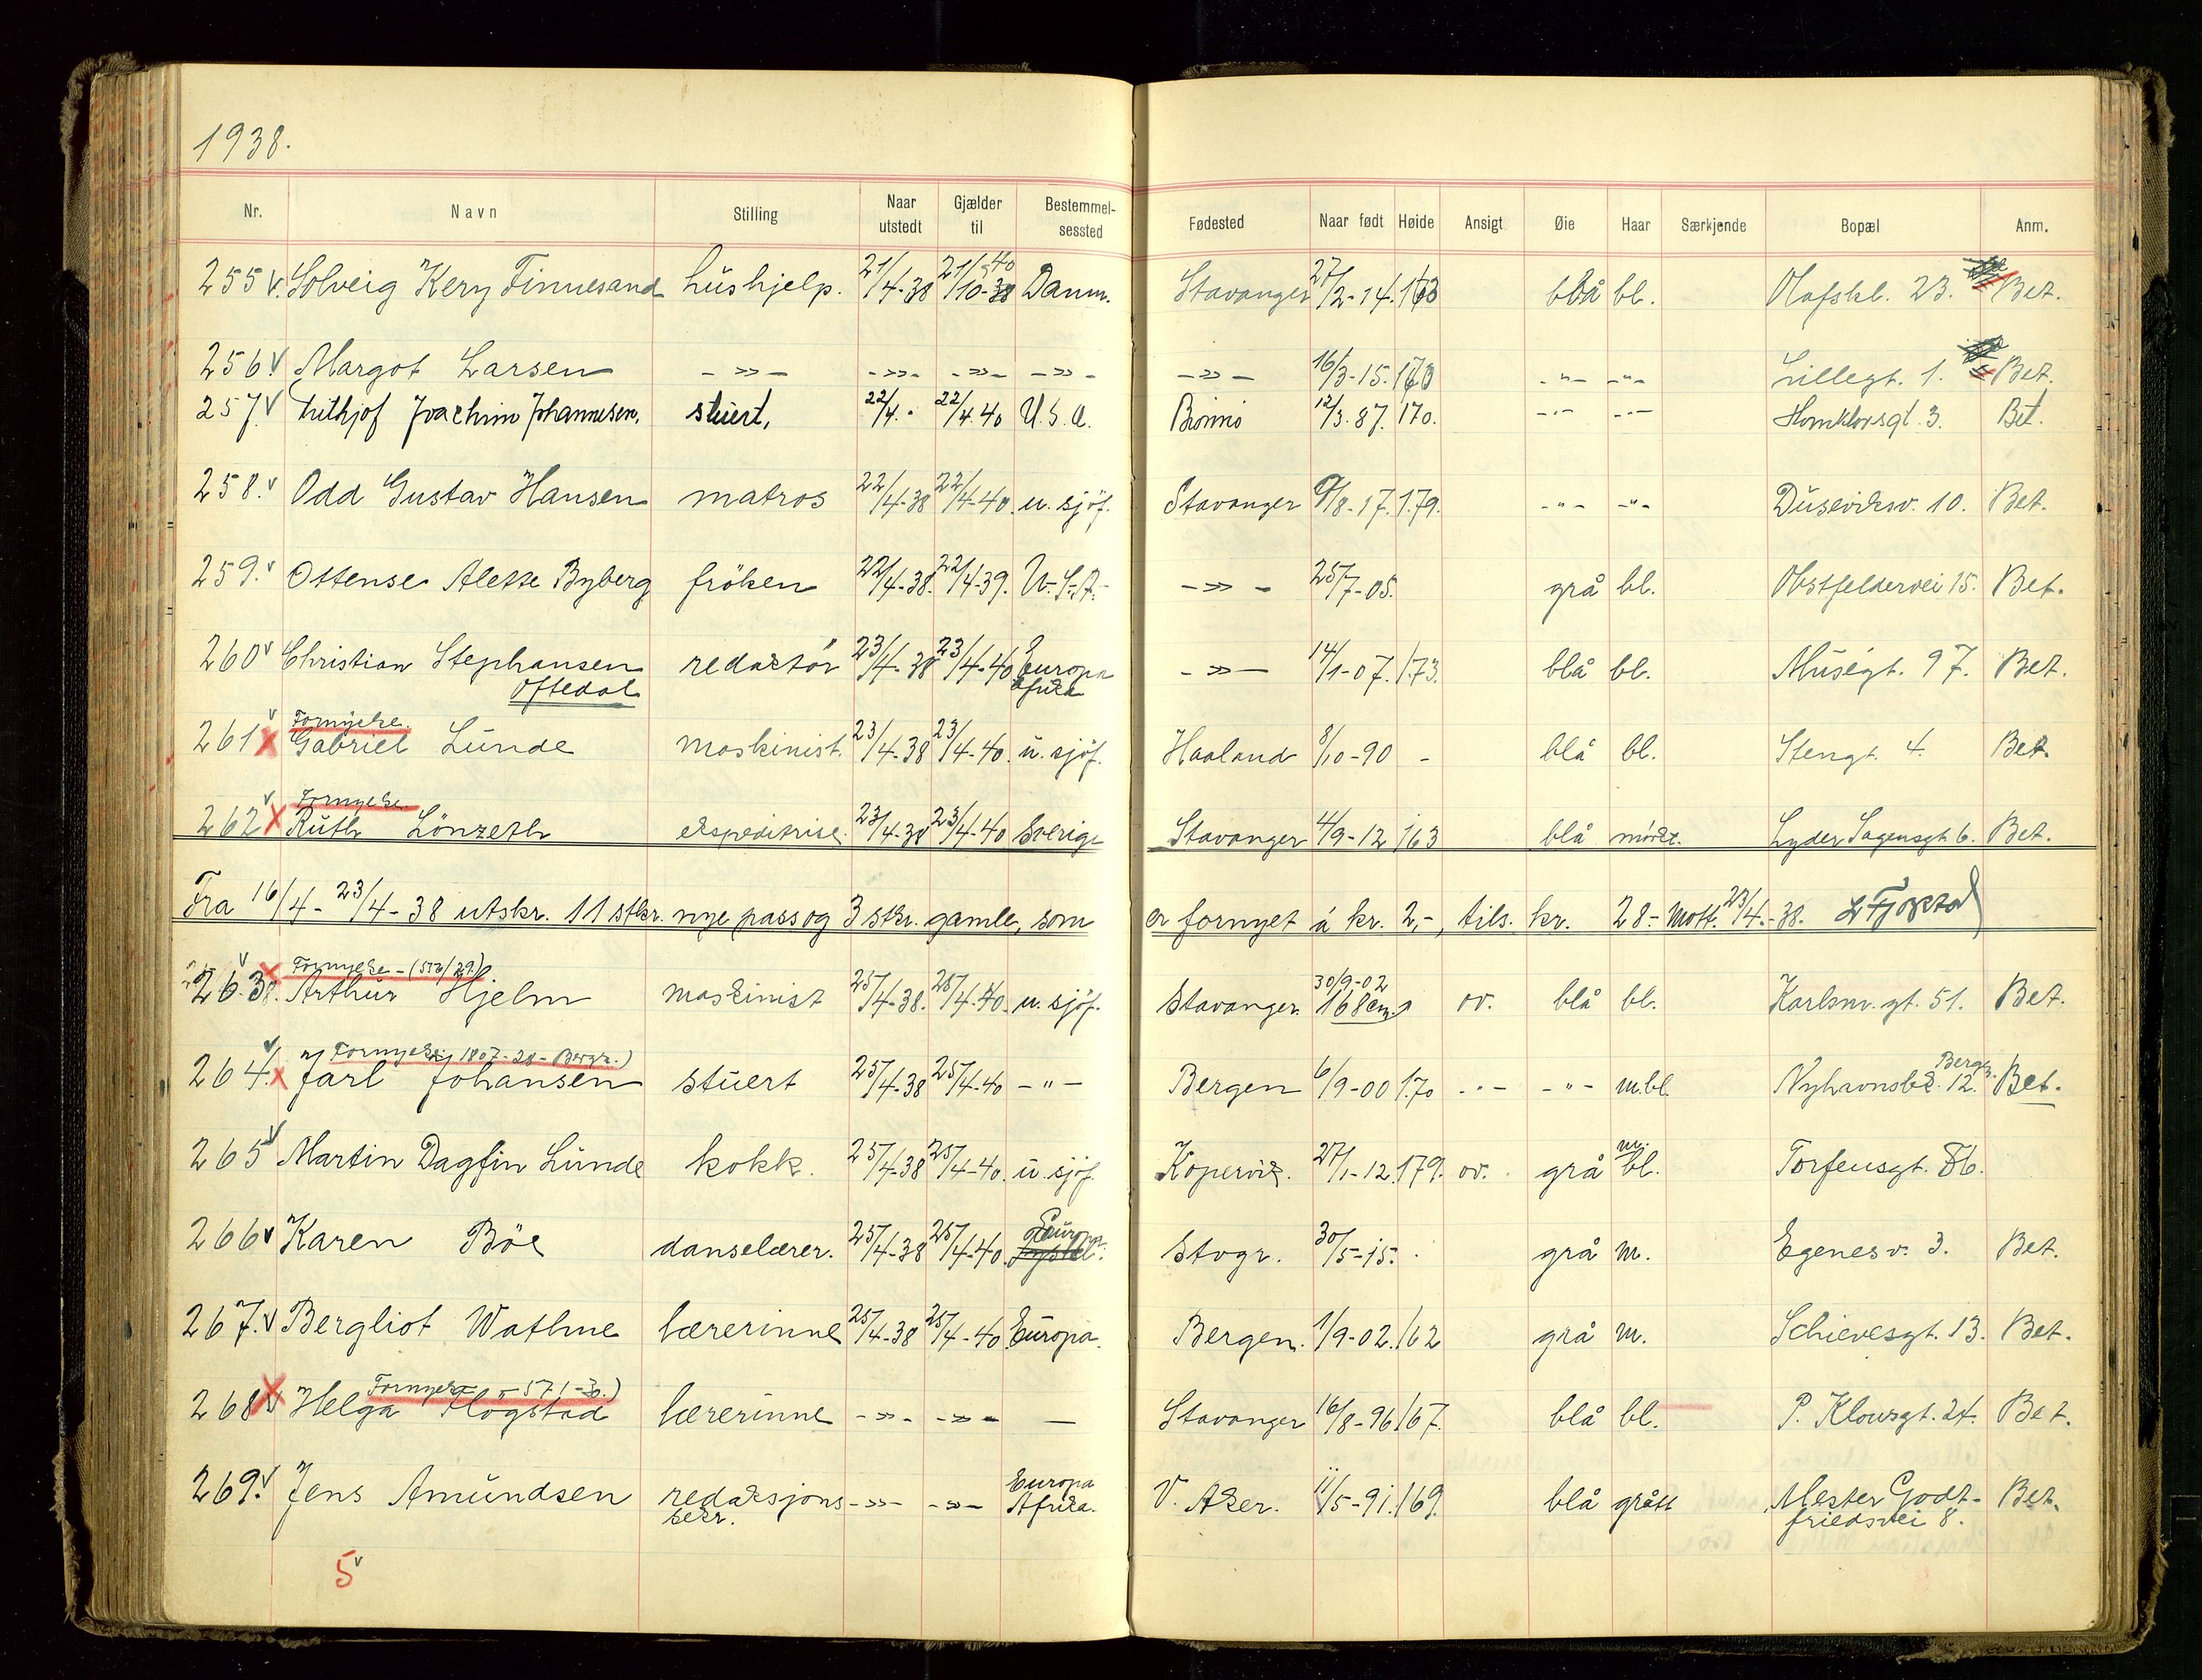 1938.
Nr. Navn Stilling Naar utstedt Gjælder til Bestemmel-sessted Fødested Naar født Høide Ansigt Øie Haar Særkjende Bopæl Anm.
255 v. Solveig Kery Finnesand hüshjelp. 21/4-38 21/10-38 40 Danm. Stavanger 27/2-14. 163 blå bl. Olafskl. 23. Bet.
256 v. Margot Larsen -»- -»- -»- -»- -»- 16/3-15. 170 -"- -"- Lillegt. 1. Bet.
257 v. Joachim Johannesen. stüert. 22/4. 22/4.40 U.S.A. Brönnö 12/3.87. 170. -"- -"- 3. Bet.
258. v Odd Gustav Hansen matros 22/4-38 22/4-40. u. sjöf. Stavanger 9/8-17. 1.79. -"- -"- Düseviksv. 10. Bet.
259. v Ottense Alette Byberg fröken 22/4-38. 22/4-39. U.S.A. -»- 25/7-05. grå bl. Obstfeldervei 15. Bet.
260 v Christian Stephansen redaktör 23/4-38 23/4-40 Europa -»- 14/1-07. 1.73. blå bl. Müségt. 97. Bet.
Oftedal Afrika
Fornyelse.
261 v x Gabriel Lünde maskinist. 23/4-38 23/4-40. ü. sjöf. Haaland 8/10-90 - blå bl. Stengt. 4. Bet.
Fornyelse
262 v x Rüth Lönzeth ekspeditrise. 23/4-38 23/4-40 Sverige Stavanger 4/9-12 163 blå mörkt. Lyder Sagensgt. 6. Bet.
Fra 16/4-23/4-38 utskr. 11 stkr. nye pass og 3 stkr. gamle, som er fornyet á kr. 2,-, tils. kr. 28.- Mott. 23/4.-38.
Fornyelse - (512/29.) 30/9-02
263 v x Arthür Hjelm maskinist 25/4-38. 25/4-40. u. sjöf. Stavanger. 168 cm. ov. blå bl. Karlsm.gt. 51. Bet.
Fornyelse 1807-28- Bergn.) Bergn.
264 v x Jarl Johansen stüert 25/4-38 25/4-40 -"- Bergen 6/9-00 1.70 -"- -"- m.bl. Nyhavnsbk. 12. Bet.
265 v Martin Dagfin Lünde kokk. 25/4-38 25/4-40. ü. sjöf. Kopervik. 27/1-12. 179. ov. grå m. bl. Torfeusgt.
266 v Karen Böe danselærer. 25/4-38 25/4-40. Europa. Stvgr. 30/5-15. grå m. Egenesv. 3. Bet.
267. v Bergliot Wathne lærerinne 25/4-38 25/4-40 Europa. Bergen. 1/9-02. 162 grå m. Schievesgt. 13. Bet.
Fornyelse - 571-30.)
268 v x Helga Högstad lærerinne -»- -»- — Stavanger 16/8-96 167. blå bl. P. Klowsgt. 24. Bet.
269. v Jens Amündsen redaksjons- -»- -»- Europa V. Aker. 11/5-91. 169. blå grått Mester Godt- Bet.
sekr. Afrika. friedsvei 8.
5 v